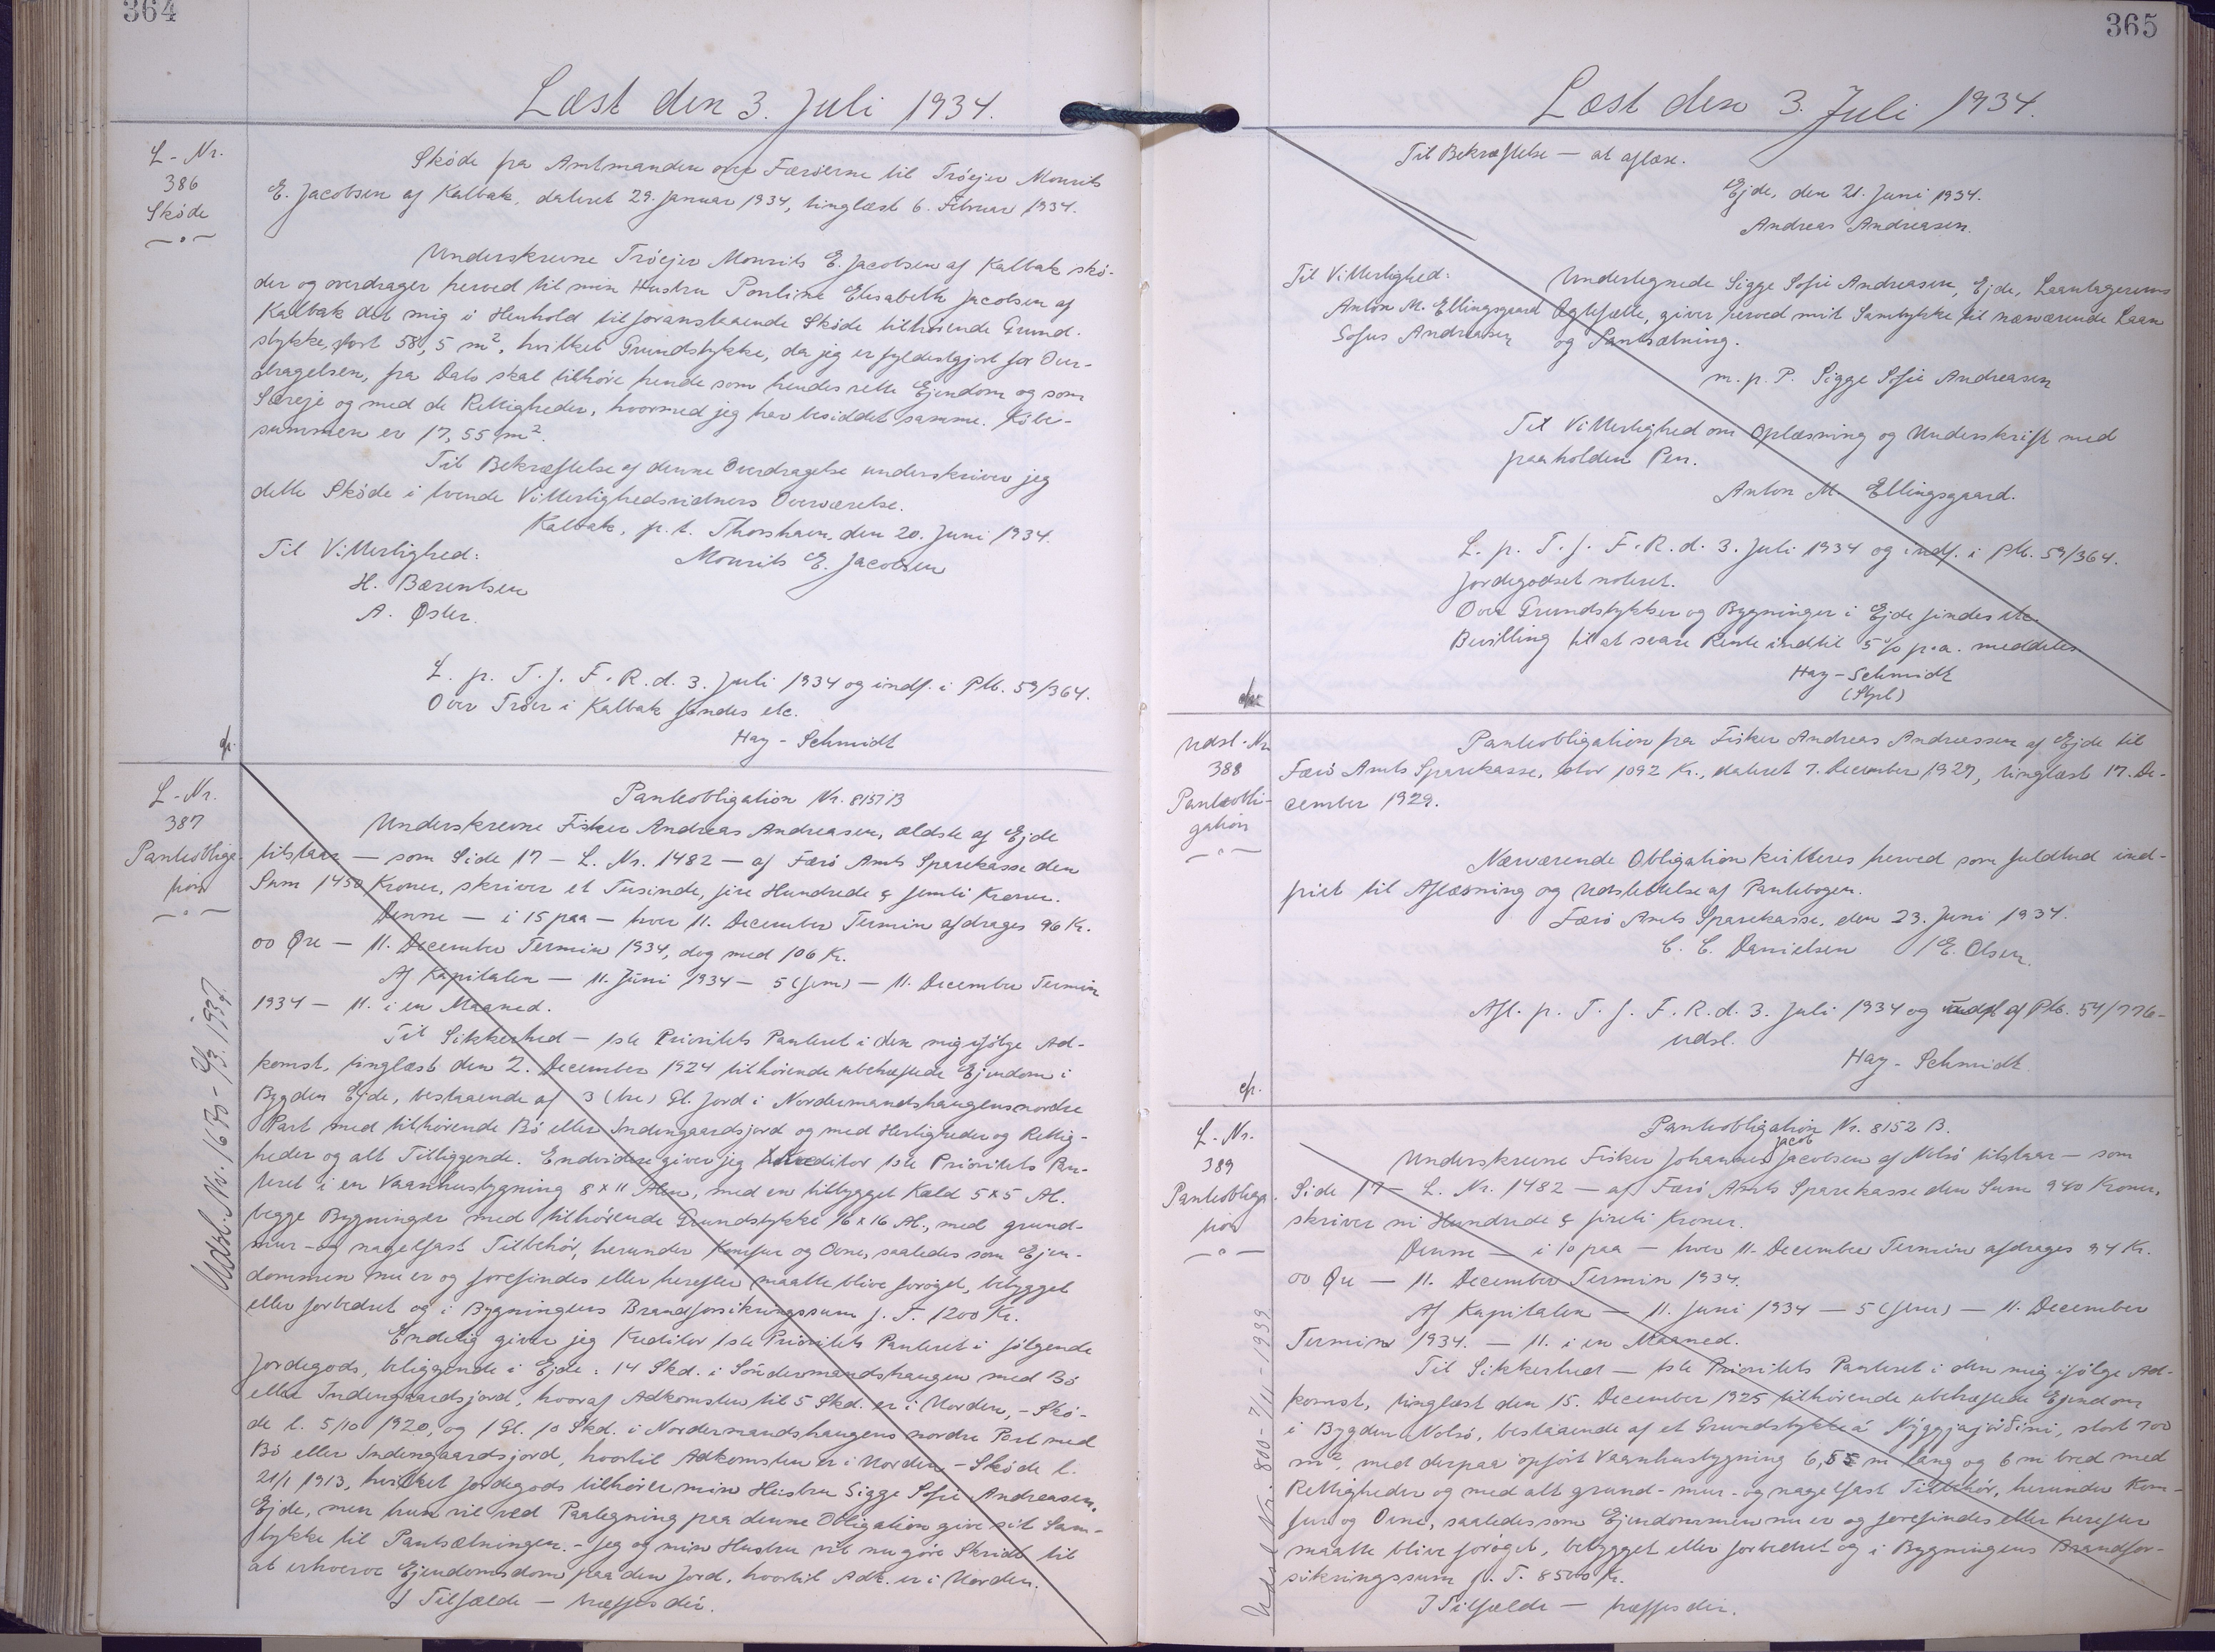 364
Læst den 3. Juli 1934.
L-Nr.
386
Skøde
Skøde fra Amtmanden over Færøerne til Trøejer Mourits
E. Jacobsen af Kalbak, dateret 29. Januar 1934, tinglæst 6. Februar 1934.
Underskrevne Trøejer Mourits E. Jacobsen af Kalbak skø-
der og overdrager herved til min Hustru Pouline Elisabeth Jacobsen af
Kalbak det mig i Henhold til foranstaaende Skøde tilhørende Grund-
stykke, stort 58,5 m², hvilket Grundstykke, da jeg er fyldestgjort for Over-
dragelsen, fra Dato skal tilhøre hende som hendes rette Ejendom og som
Særeje og med de Rettigheder, hvormed jeg har besiddet samme. Købe-
summen er 17,55 m².
Til Bekræftelse af denne Overdragelse underskriver jeg
dette Skøde i tvende Vitterlighedsvidners Overværelse.
Kalbak, p.t. Thorshavn, den 20. Juni 1934.
Til Vitterlighed: Mourits E. Jacobsen
H. Bærentsen
A. Øster.
L. p. T. f. F. R. d. 3. Juli 1934 og indf. i Ptb. 59/364.
Over Trøer i Kalbak findes etc.
Hay-Schmidt
L-Nr.
387
Panteobliga-
tion
Udsl. Nr. 167
Panteobligation Nr. 8151 B
Underskrevne Fisker Andreas Andreasen, ældste af Ejde
tilstaar — som Side 17 — L. Nr. 1482 — af Færø Amts Sparekasse den
Sum 1450 Kroner, skriver et Tusinde, fire Hundrede & femti Kroner.
Denne — i 15 paa — hver 11. December Termin afdrages 96 Kr.
00 Øre — 11. December Termin 1934, dog med 106 Kr.
Af Kapitalen — 11. Juni 1934 — 5 (fem) — 11. December Termin
1934 — 11. i en Maaned.
Til Sikkerhed — 1ste Prioritets Panteret i den mig ifølge Ad-
komst, tinglæst den 2. December 1924 tilhørende ubehæftede Ejendom i
Bygden Ejde, bestaaende af 3 (tre) Gl. Jord i Nordermandshaugens nordre
Part med tilhørende Bø eller Indengaardsjord og med Herligheder og Rettig-
heder og alt Tilliggende. Endvidere giver jeg Kreditor 1ste Prioritets Pan-
teret i en Vaaanhusbygning 8 x 11 Alen, med en tilbygget Kæld 5 x 5 Al.
begge Bygninger med tilhørende Grundstykke 16 x 16 Al., med grund-
mur- og nagelfast Tilbehør, herunder Komfur og Ovne, saaledes som Ejen-
dommen nu er og forefindes eller herefter maatte blive forøget, bebygget
eller forbedret og i Bygningens Brandforsikringssum f. T. 1200 Kr.
Endelig giver jeg Kreditor 1ste Prioritets Panteret i følgende
Jordegods, beliggende i Ejde: 14 Skd. i Søndermandshaugen med Bø
eller Indengaardsjord, hvoraf Adkomsten til 5 Skd. er i Orden, - Skø-
de l. 5/10 1920, og 1 Gl. 10 Skd. i Nordermandshaugens nordre Part med
Bø eller Indengaardsjord, hvortil Adkomsten er i Orden - Skøde l.
21/1 1913, hvilket Jordegods tilhører min Hustru Sigge Sofie Andreasen,
Ejde, men hun vil ved Paategning paa denne Obligation give sit Sam-
tykke til Pantsætningen. - Jeg og min Hustru vil nu gøre Skridt til
at erhverve Ejendomsdom paa den Jord, hvortil Adk. er i Uorden.
I Tilfælde — træffes der.
365
Læst den 3. Juli 1934.
Til Bekræftelse — at aflæse.
Ejde, den 21. Juni 1934.
Andreas Andreasen.
Til Vitterlighed:
Anton M. Ellingsgaard
Sofus Andreasen
Undertegnede Sigge Sofie Andreasen, Ejde, Laantagerens
Ægtefælle, giver herved mit Samtykke til nærværende Laan
og Pantsætning.
m. p. P. Sigge Sofie Andreasen
Til Vitterlighed om Oplæsning og Underskrift med
paaholden Pen.
Anton M. Ellingsgaard.
L. p. T. f. F. R. d. 3. Juli 1934 og indf. i Ptb. 59/364.
Jordegodset noteret.
Over Grundstykker og Bygninger i Ejde findes etc.
Bevilling til at svare Rente indtil 5% p.a. meddeles
Hay-Schmidt
(Stpl)
Udsl-Nr
388
Panteobli-
gation
Panteobligation fra Fisker Andreas Andreassen af Ejde til
Færø Amts Sparekasse, stor 1092 Kr., dateret 7. December 1929, tinglæst 17. De-
cember 1929.
Nærværende Obligation kvitteres herved som fuldtud ind-
friet til Aflæsning og Udslettelse af Pantebogen.
Færø Amts Sparekasse, den 23. Juni 1934.
C. C. Danielsen / E. Olsen.
Afl. p. T. f. F. R. d. 3. Juli 1934 og udsl af Ptb. 54/776-
udsl.
Hay-Schmidt
L-Nr.
389
Panteobliga-
tion
Udsl Nr. 800-7/11-1939
Panteobligation Nr. 8152 B.
Underskrevne Fisker Johannes Jacob Jacobsen af Nolsø tilstaar — som
Side 17 — L. Nr. 1482 — af Færø Amts Sparekasse den Sum 940 Kroner,
skriver ni Hundrede & fireti Kroner.
Denne — i 10 paa — hver 11. December Termin afdrages 94 Kr.
00 Øre — 11. December Termin 1934.
Af Kapitalen — 11. Juni 1934 — 5 (fem) — 11. December
Termin 1934. — 11. i en Maaned.
Til Sikkerhed — 1ste Prioritets Panteret i den mig ifølge Ad-
komst, tinglæst den 15. December 1925 tilhørende ubehæftede Ejendom
i Bygden Nolsø, bestaaende af et Grundstykke á Nýggjajørðini, stort 700
m², med derpaa opført Vaaanhusbygning 6,85 m lang og 6 m bred med
Rettigheder og med alt grund- mur- og nagelfast Tilbehør, herunder Kom-
fur og Ovne, saaledes som Ejendommen nu er og forefindes eller herefter
maatte blive forøget, bebygget eller forbedret og i Bygningens Brandfor-
sikringssum p. T. 8500 Kr.
I Tilfælde — træffes der.